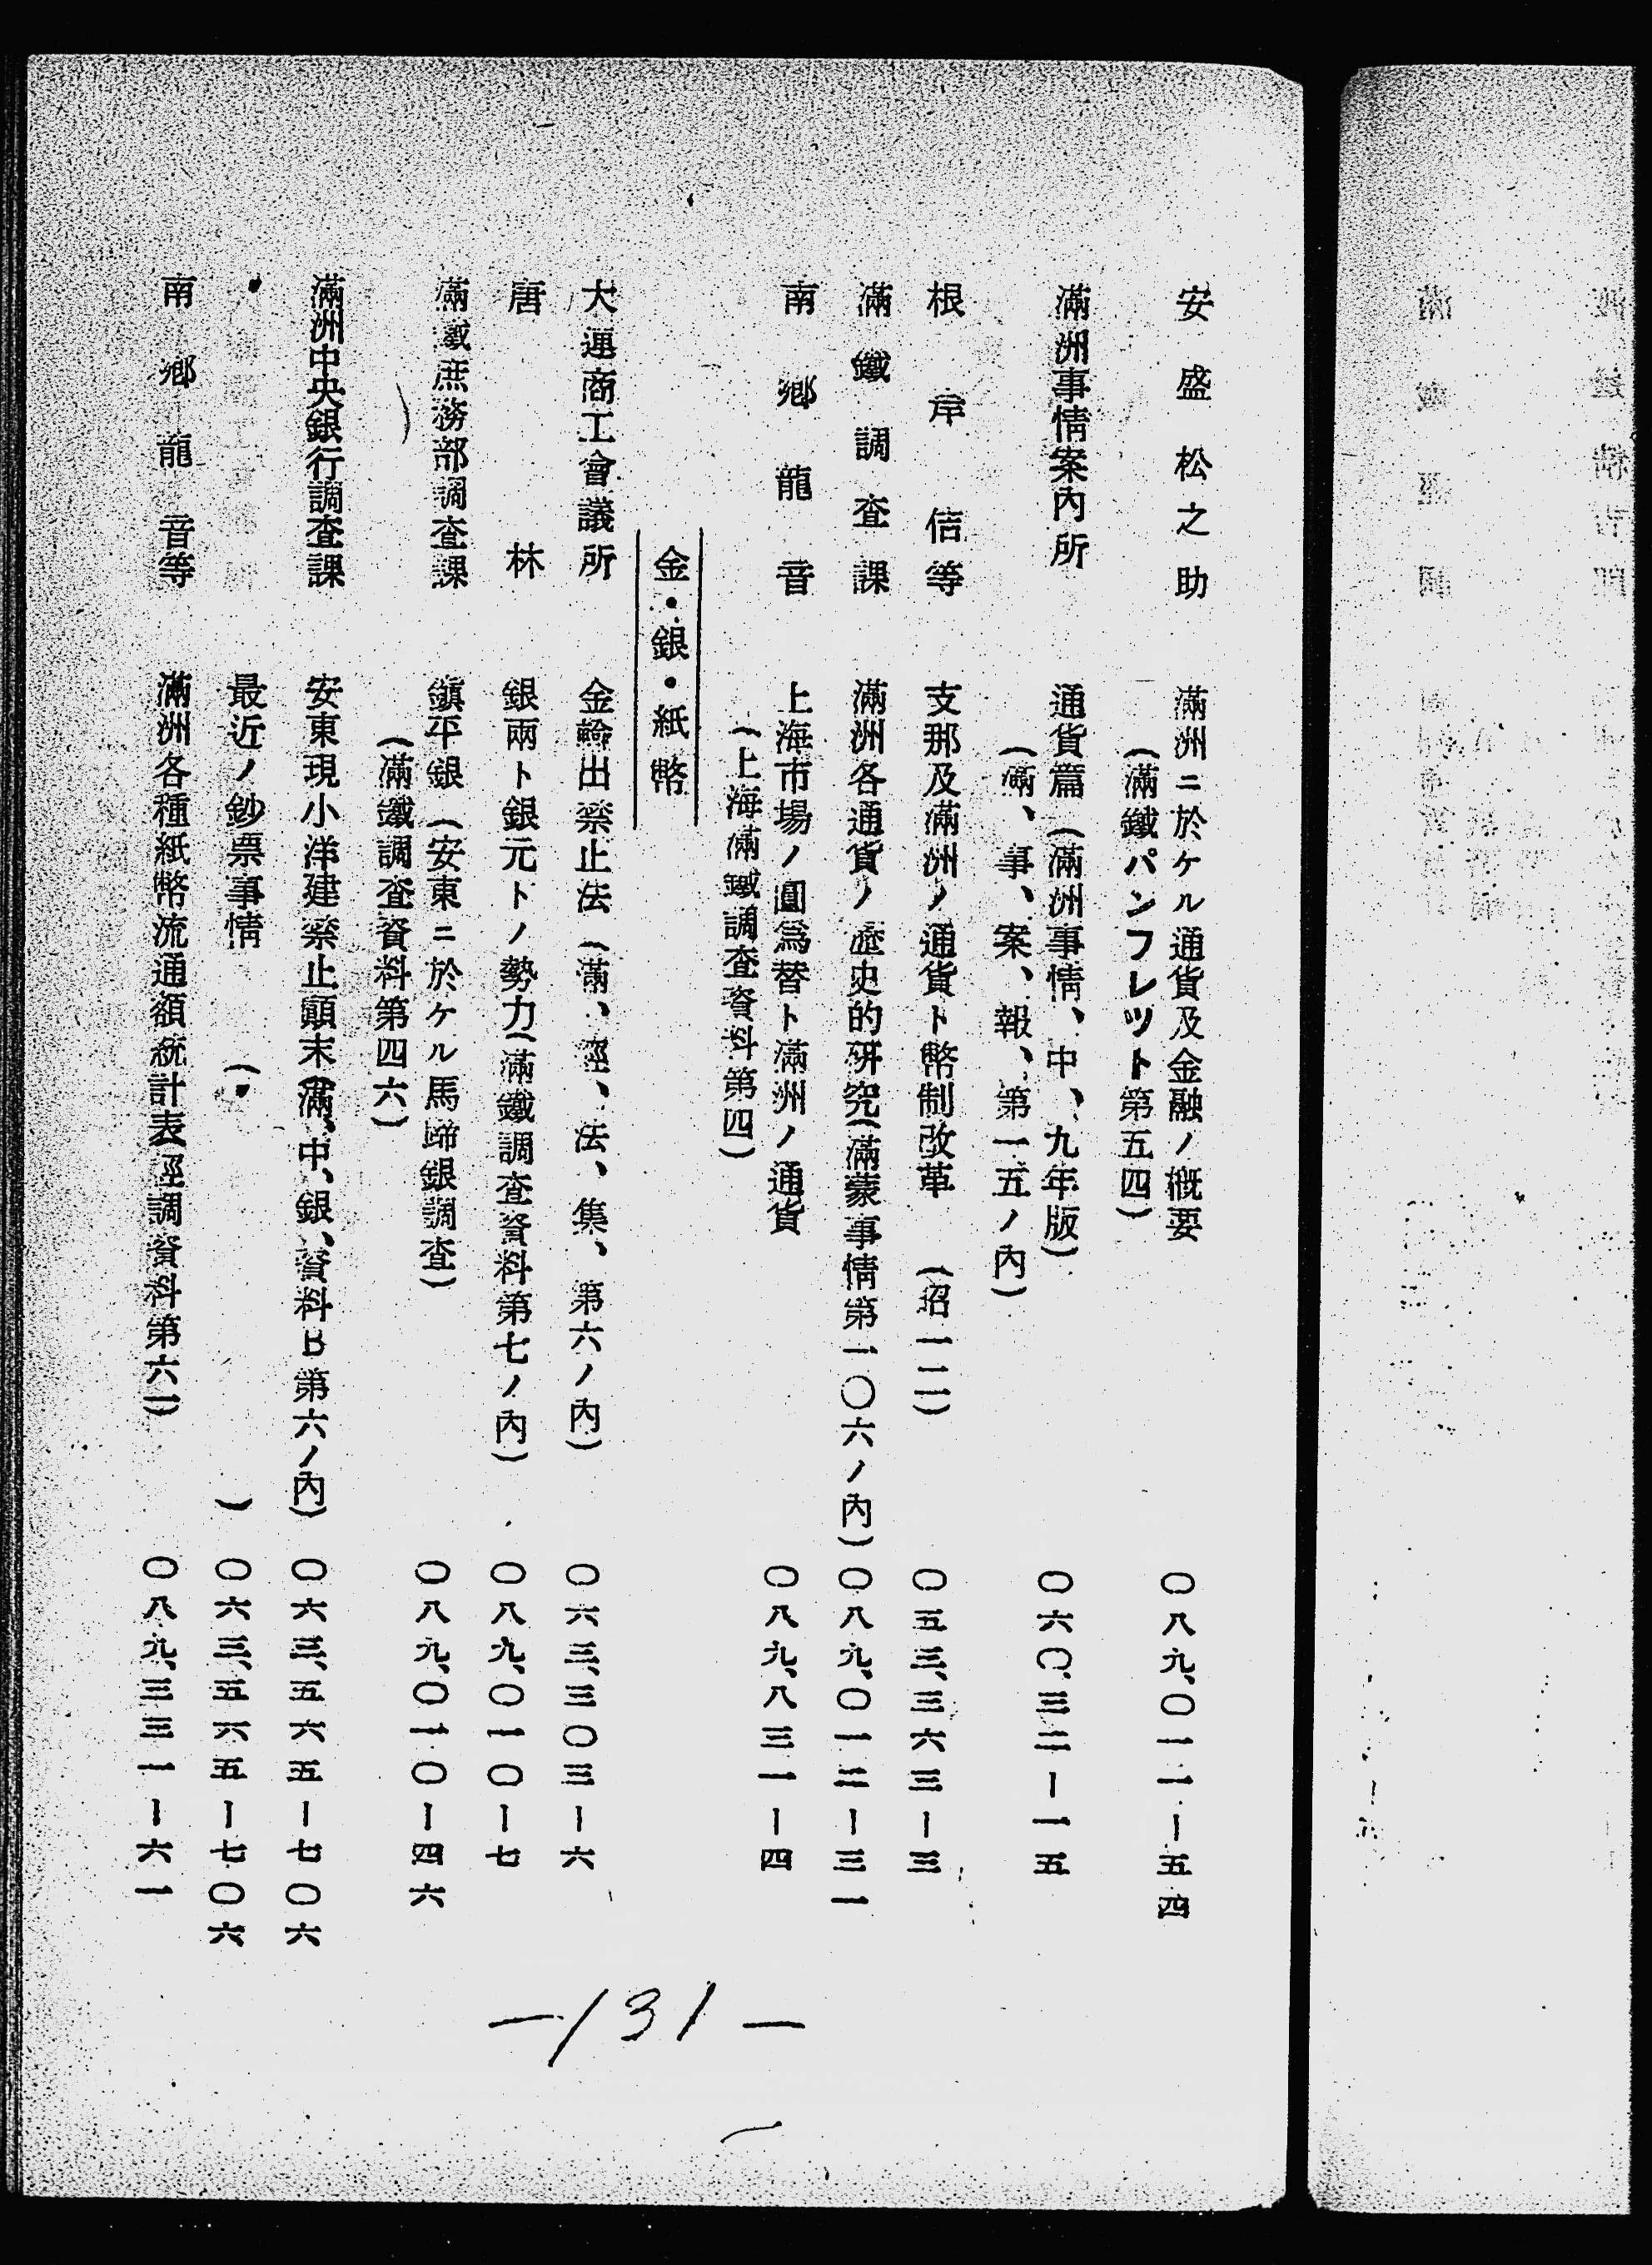 安盛松之助 滿洲ニ於ケル通貨及金融ノ概要 〇八九、〇一一ー五四
(滿鐵パンフレツト第五四)
滿洲事情案內所 通貨篇(滿洲事情、中、九年版) 〇六〇、三二ー一五
(滿、事、案、報、第一五ノ內)
根岸佶等 支那及滿洲ノ通貨ト幣制改革 (昭一二) 〇五三、三六三ー三
滿鐵調査課 滿洲各通貨ノ歷史的硏究(滿蒙事情第一〇六ノ內) 〇八九、〇一二ー三一
南鄉龍音 上海市場ノ圓爲替ト滿洲ノ通貨 〇八九、八三一ー四
(上海滿鐵調査資料第四)
金・銀・紙幣
大連商工會議所 金輸出禁止法(滿、經、法、集、第六ノ內) 〇六三、三〇三ー六
唐林 銀兩ト銀元トノ勢力(滿鐵調査資料第七ノ內) 〇八九、〇一〇ー七
滿鐵庶務部調査課 鎭平銀(安東ニ於ケル馬蹄銀調査) 〇八九、〇一〇ー四六
(滿鐵調査資料第四六)
滿洲中央銀行調査課 安東現小洋建禁止顚末(滿、中、銀、資料B第六ノ內) 〇六三、五六五ー七〇六
〃 最近ノ鈔票事情 (〃 ) 〇六三、五六五ー七〇六
南鄉龍音等 滿洲各種紙幣流通額統計表(經調資料第六一) 〇八九、三三一ー六一
—131—